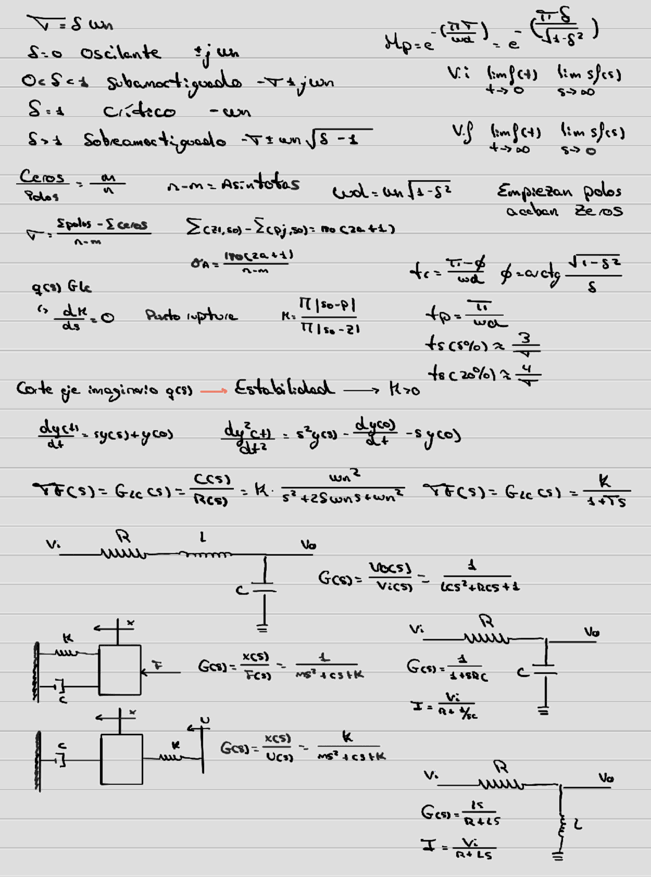 ∇ = δ wn
δ=0 oscilante ±j wn
0<δ<1 subamortiguado -∇±jwn
δ=1 crítico -wn
δ>1 Sobreamortiguado -∇±wn√(δ-1)
Mp=e^-(π∇/wd) = e^-(πδ/√(1-δ²))
V.i lim f(t) t→0 lim sf(s) s→∞
V.f lim f(t) t→∞ lim sf(s) s→0
Ceros/Polos = m/n n-m = Asíntotas wd = wn√(1-δ²) Empiezan polos acaban zeros
∇ = (Σpolos - Σceros)/(n-m) Σ(zi,s0) - Σ(pj,s0) = 180(2a+1)
σA = 180(2a+1)/(n-m)
tc = (π-ϕ)/wd ϕ = arctg √(1-δ²)/δ
q(s) Glc
↳ dk/ds = 0 Punto ruptura K = Π|s0-p|/Π|s0-z| tp = π/wd
ts(5%) ≈ 3/∇
ts(20%) ≈ 4/∇
Corte eje imaginario q(s) → Estabilidad → K>0
dy(t)/dt = sy(s)+y(0) dy²(t)/dt² = s²y(s) - dy(0)/dt - sy(0)
TF(s) = GLC(s) = C(s)/R(s) = K · wn²/(s²+2δwns+wn²) TF(s) = GLC(s) = K/(1+Ts)
Vi R L Vo
C G(s) = Vo(s)/Vi(s) = 1/(LCs²+RCs+1)
x K F C G(s) = x(s)/F(s) = 1/(ms²+cs+k)
Vi R Vo
G(s) = 1/(1+sRC) C
I = Vi/(R+1/sc)
x C K U G(s) = x(s)/U(s) = k/(ms²+cs+k)
Vi R Vo
G(s) = Ls/(R+Ls) L
I = Vi/(R+Ls)